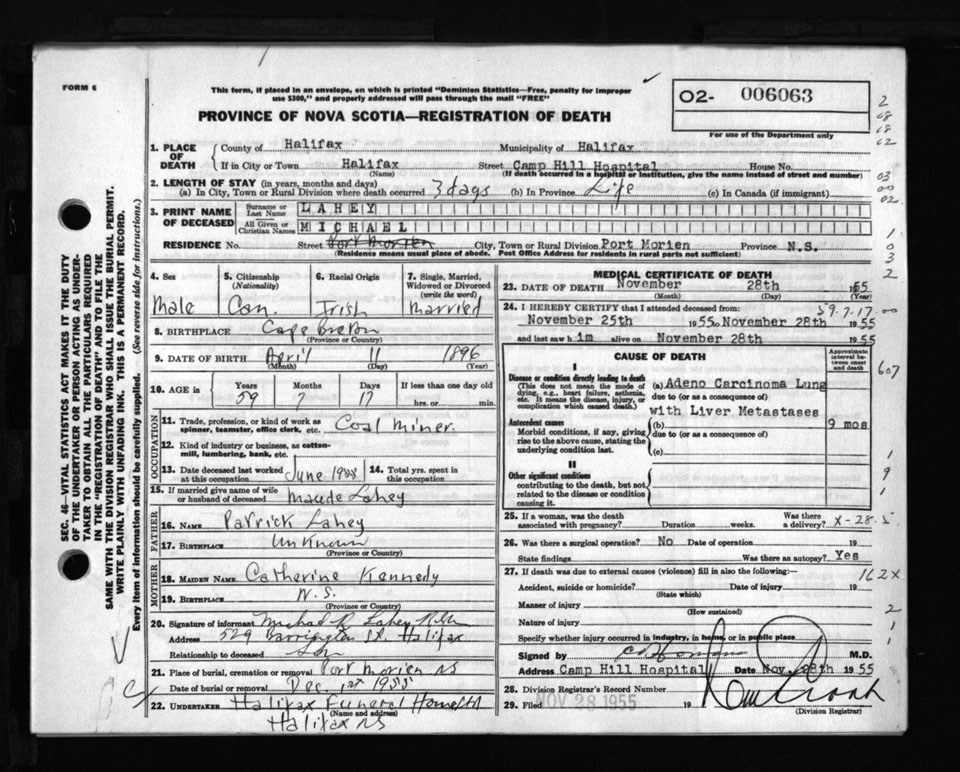 FORM 6
This form, if placed in an envelope, on which is printed "Dominion Statistics—Free, penalty for improper
use $300," and properly addressed will pass through the mail "FREE"
PROVINCE OF NOVA SCOTIA—REGISTRATION OF DEATH
02- 006063
For use of the Department only
SEC. 46—VITAL STATISTICS ACT MAKES IT THE DUTY
OF THE UNDERTAKER OR PERSON ACTING AS UNDER-
TAKER TO OBTAIN ALL THE PARTICULARS REQUIRED
IN THE "REGISTRATION OF DEATH" AND TO FILE THE
SAME WITH THE DIVISION REGISTRAR WHO SHALL ISSUE THE BURIAL PERMIT.
WRITE PLAINLY WITH UNFADING INK. THIS IS A PERMANENT RECORD.
Every item of information should be carefully supplied. (See reverse side for instructions.)
1. PLACE OF DEATH County of Halifax Municipality of Halifax
If in City or Town Halifax (Name) Street Camp Hill Hospital House No.
(If death occurred in a hospital or institution, give the name instead of street and number)
2. LENGTH OF STAY (in years, months and days)
(a) In City, Town or Rural Division where death occurred 3 days (b) In Province Life (c) In Canada (if immigrant)
3. PRINT NAME OF DECEASED Surname or Last Name LAHEY
All Given or Christian Names MICHAEL
RESIDENCE No. Street Port Morien City, Town or Rural Division Port Morien Province N.S.
(Residence means usual place of abode. Post Office Address for residents in rural parts not sufficient)
4. Sex Male
5. Citizenship (Nationality) Can.
6. Racial Origin Irish
7. Single, Married, Widowed or Divorced (write the word) Married
8. BIRTHPLACE Cape Breton
(Province or Country)
9. DATE OF BIRTH April 11 1896
(Month) (Day) (Year)
10. AGE in Years 59 Months 7 Days 17 If less than one day old hrs. or min.
OCCUPATION
11. Trade, profession, or kind of work as spinner, teamster, office clerk, etc. Coal Miner
12. Kind of industry or business, as cotton-mill, lumbering, bank, etc.
13. Date deceased last worked at this occupation June 1955 14. Total yrs. spent in this occupation
15. If married give name of wife or husband of deceased Maude Lahey
FATHER
16. NAME Patrick Lahey
17. BIRTHPLACE Unknown
(Province or Country)
MOTHER
18. MAIDEN NAME Catherine Kennedy
19. BIRTHPLACE N.S.
(Province or Country)
20. Signature of informant Michael R Lahey
Address 529 Barrington St. Halifax
Relationship to deceased Son
21. Place of burial, cremation or removal Port Morien NS
Date of burial or removal Dec. 1st 1955
22. UNDERTAKER Halifax Funeral Home Ltd
(Name and address)
Halifax NS
MEDICAL CERTIFICATE OF DEATH
23. DATE OF DEATH November 28th 1955
(Month) (Day) (Year)
24. I HEREBY CERTIFY that I attended deceased from: 59.7-17
November 25th 1955 to November 28th 1955
and last saw h im alive on November 28th 1955
CAUSE OF DEATH
Approximate interval between onset and death
I
Disease or condition directly leading to death
(This does not mean the mode of dying, e.g., heart failure, asthenia, etc. It means the disease, injury, or complication which caused death.)
(a) Adeno Carcinoma Lung
due to (or as a consequence of)
with Liver Metastases
Antecedent causes
Morbid conditions, if any, giving rise to the above cause, stating the underlying condition last.
(b) 9 mos
due to (or as a consequence of)
(c)
II
Other significant conditions
contributing to the death, but not related to the disease or condition causing it.
25. If a woman, was the death associated with pregnancy? Duration weeks. Was there a delivery? X-28.5
26. Was there surgical operation? No Date of operation 19
State findings Was there an autopsy? Yes
27. If death was due to external causes (violence) fill in also the following:— 162X
Accident, suicide or homicide? Date of injury 19
(State which)
Manner of injury
(How sustained)
Nature of injury
Specify whether injury occurred in industry, in home, or in public place
Signed by M.D.
Address Camp Hill Hospital Date Nov. 28th 1955
28. Division Registrar's Record Number
29. Filed NOV 28 1955 19
(Division Registrar)
2
03
00
02
1
0
3
2
607
1
9
1
2
1
1